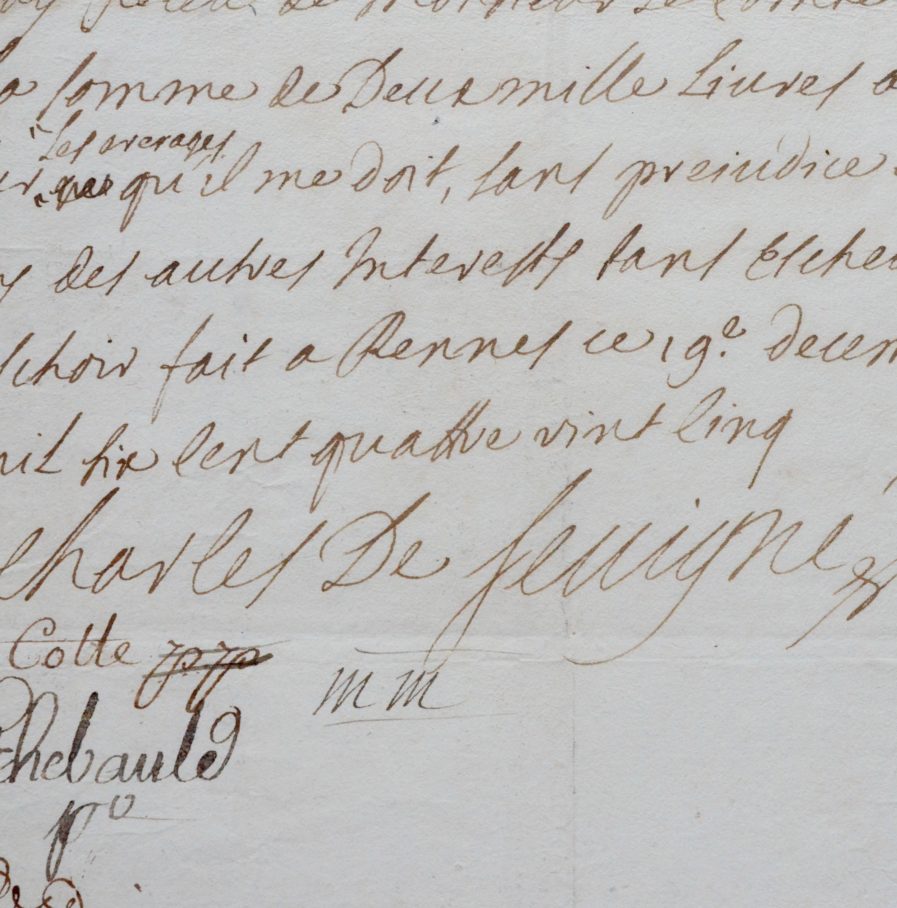 de Monsieur le Comte
somme de Deux mille liures a
les arerages
qu'il me doit, sans preiudice
des autres Interests tant Escheu
choir fait a Rennes ce 19e. decem
mil six cent quattre vint cinq
Charles De Seuigné
Cotte
mm
Thebauld
po